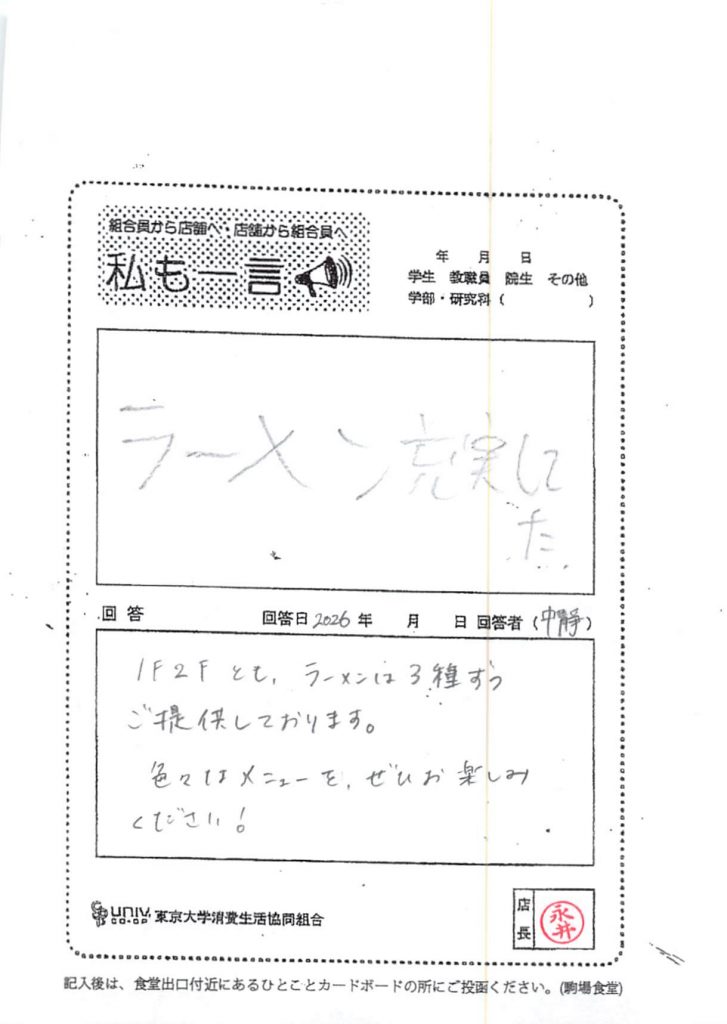 組合員から店舗へ・店舗から組合員へ
私も一言
年 月 日
学生 教職員 院生 その他
学部・研究科 ( )
ラーメン充実して
た
回答 回答日2026年 月 日 回答者(中静)
1F2Fとも、ラーメンは3種ずつ
ご提供しております。
色々なメニューを、ぜひお楽しみ
ください!
UNIV. CO-OP 東京大学消費生活協同組合
店長 永井
記入後は、食堂出口付近にあるひとことカードボードの所にご投函ください。(駒場食堂)